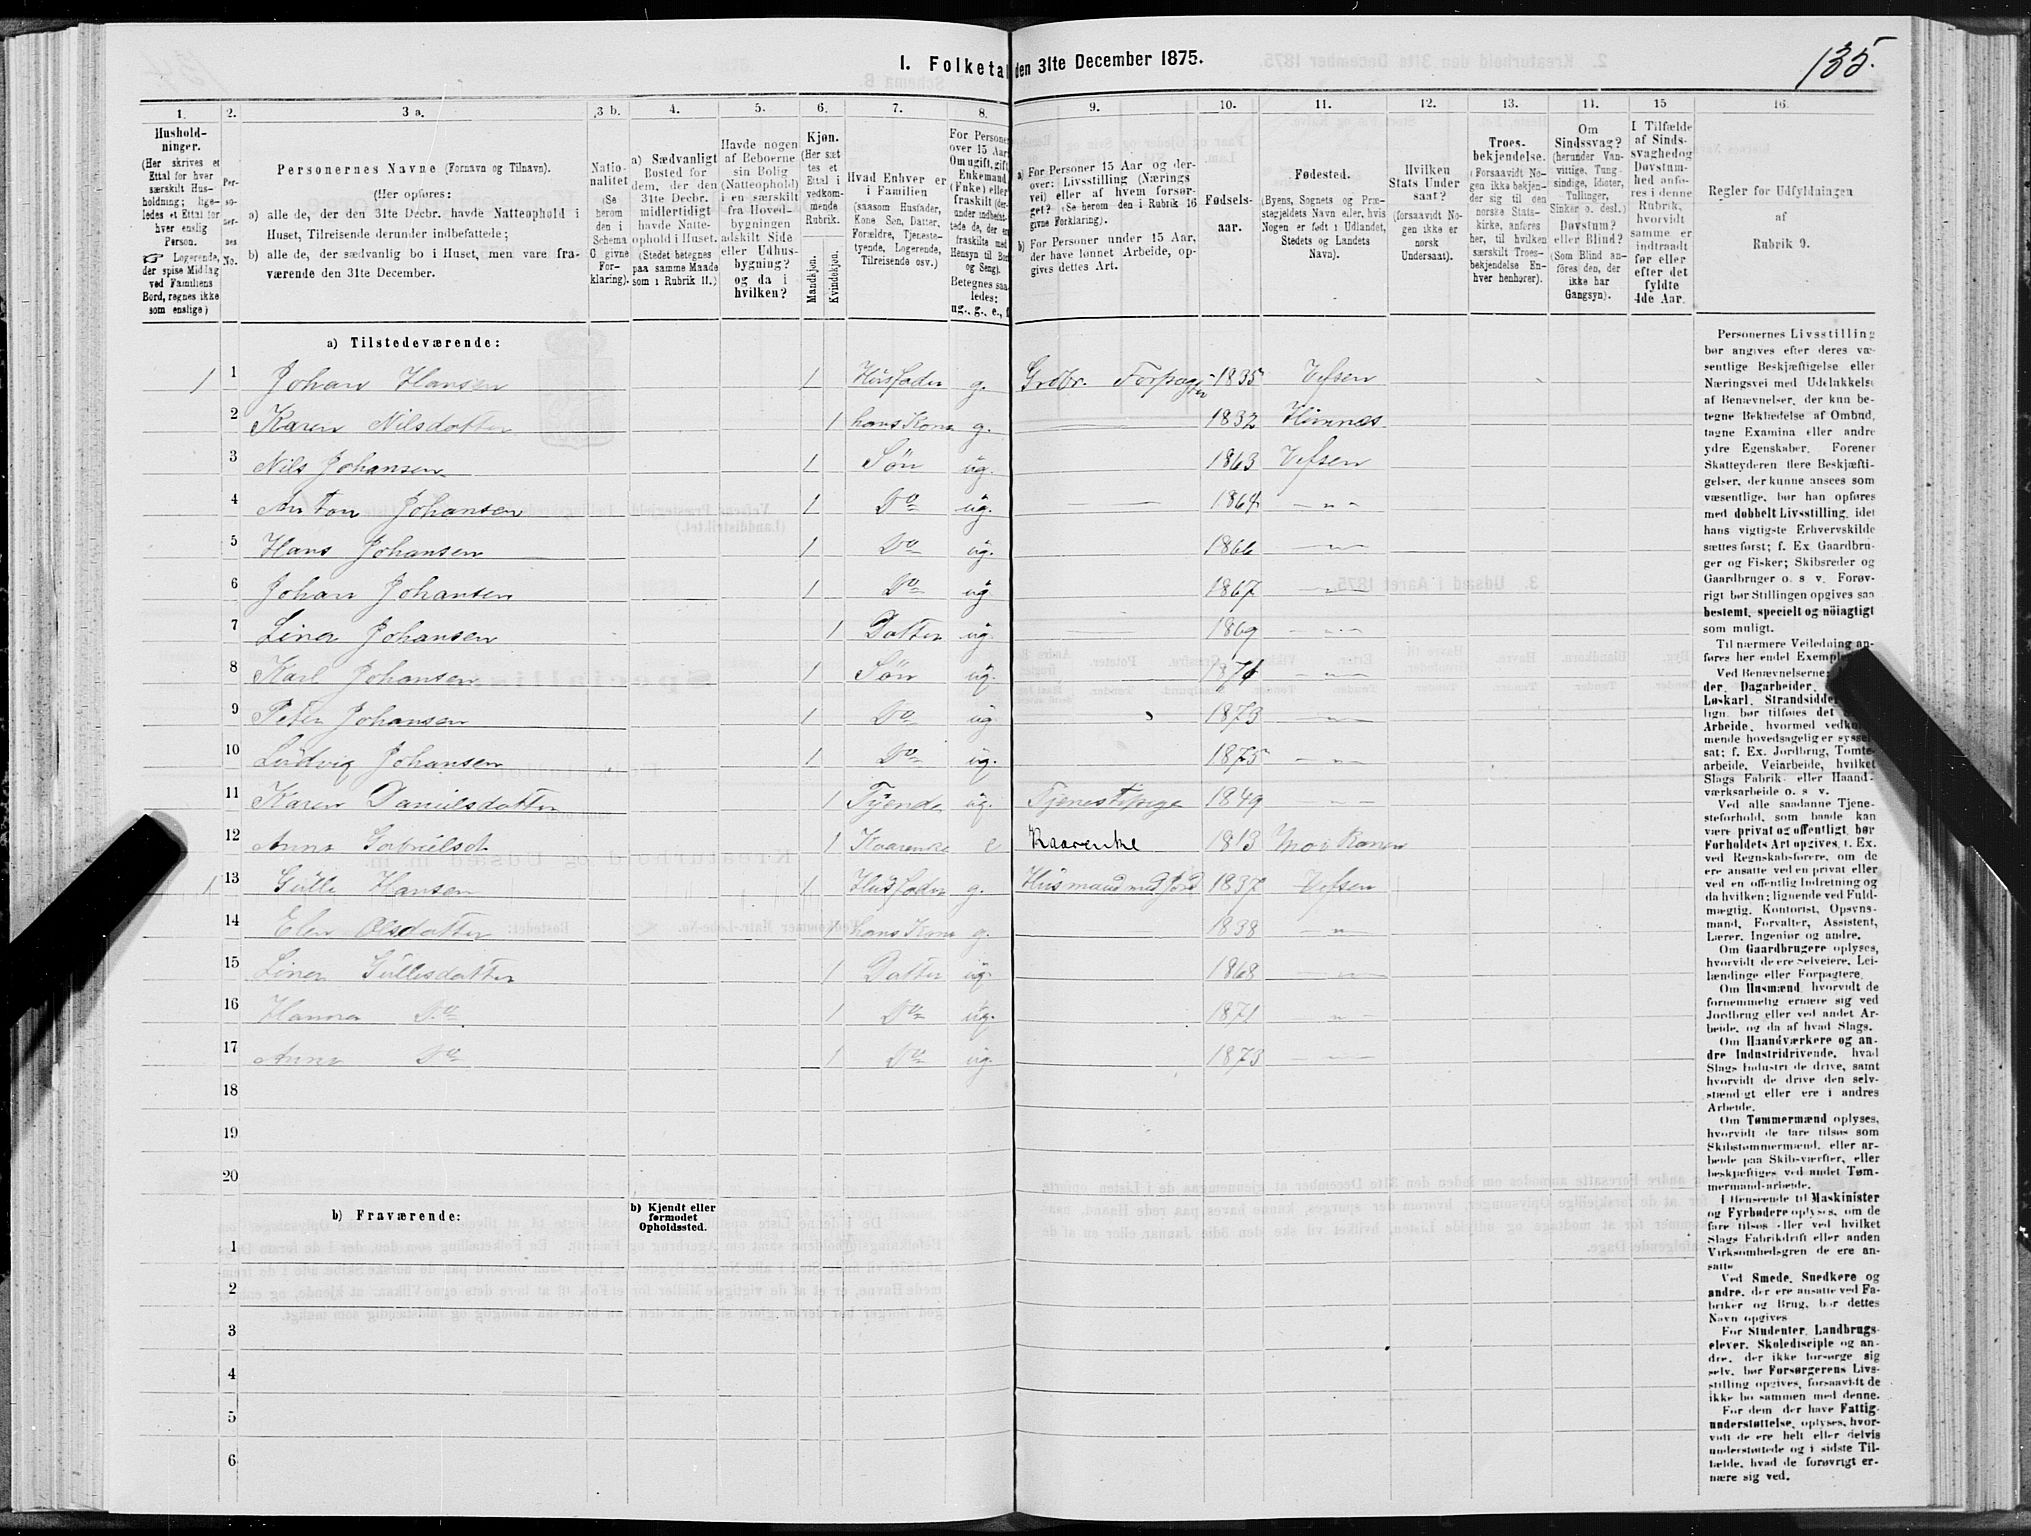 135.
I. Folketal den 31te December 1875.
1. 2. 3 a. 3 b. 4. 5. 6. 7. 8. 9. 10. 11. 12. 13. 14. 15 16.
Hushold-
ninger.
(Her skrives et
Ettal for hver
særskilt Hus-
holdning; lige-
ledes et Ettal for
hver enslig
Person.
☞ Logerende,
der spise Middag
ved Familiens
Bord, regnes ikke
som enslige)
Per-
so-
ner-
nes
No.
Personernes Navne (Fornavn og Tilnavn).
(Her opføres:
a) alle de, der den 31te Decbr. havde Natteophold i
Huset, Tilreisende derunder indbefattede;
b) alle de, der sædvanlig bo i Huset, men vare fra-
værende den 31te December.
Natio-
nalitet
(Se
herom
den i
Schema
C. givne
For-
klaring).
a) Sædvanligt
Bosted for
dem, der den
31te Decbr.
midlertidigt
havde Natte-
ophold i Huset.
(Stedet betegnes
paa samme Maade
som i Rubrik 11.)
Havde nogen
af Beboerne
sin Bolig
(Natteophold)
i en særskilt
fra Hoved-
bygningen
adskilt Side
eller Udhus-
bygning?
og da i
hvilken?
Kjøn.
(Her sæt
tes et
Ettal i
vedkom-
mende
Rubrik.
Mandkjøn.
Kvindekjøn.
Hvad Enhver er
i Familien
(saasom Husfader,
Kone Søn, Datter,
Forældre, Tjeneste-
tyende, Logerende,
Tilreisende osv.)
For Persone
over 15 Aar
Om ugift, gift
Enkemand
(Enke) eller
fraskilt (der-
under indbefat-
tede de, der er
fraskilte med
Hensyn til Bor
og Seng).
Betegnes saa-
ledes:
ug., g., e., f.
a) For Personer 15 Aar og der-
over: Livsstilling (Nærings
vei) eller af hvem forsør-
get? (Se herom den i Rubrik 16
givne Forklaring).
b) For Personer under 15 Aar,
der have lønnet Arbeide, op-
gives dettes Art.
Fødsels-
aar.
Fødested.
(Byens, Sognets og Præ-
stegjeldets Navn eller, hvis
Nogen er født i Udlandet,
Stedets og Landets
Navn).
Hvilken
Stats Under
saat?
(forsaavidt No-
gen ikke er
norsk
Undersaat).
Troes-
bekjendelse.
(Forsaavidt No-
gen ikke bekjen-
der sig til den
norske Stats-
kirke, anføres
her, til hvilken
særskilt Troes-
bekjendelse En-
hver henhører).
Om
Sindssvag?
(herunder Van-
vittige, Tung-
sindige, Idioter,
Tullinger,
Sinker o. desl.)
Døvstum?
eller Blind?
(Som Blind an-
føres den, der
ikke har
Gangsyn).
I Tilfælde
af Sinds-
svaghed og
Døvstum-
hed anfø-
res i denne
Rubrik,
hvorvidt
samme er
indtraadt
før eller
efter det
fyldte
4de Aar.
Regler for Udfyldningen
af
Rubrik 9.
a) Tilstedeværende:
1 1 Johan Hansen 1 Husfader g. Grdbr. Forpagter 1835 Vefsen
2 Karen Nilsdatter 1 hans Kone g. 1832 Hemnes
3 Nils Johansen 1 Søn ug. 1863 Vefsen
4 Anton Johansen 1 Do ug. 1864 — " —
5 Hans Johansen 1 Do ug. 1866 — " —
6 Johan Johansen 1 Do ug 1867 — " —
7 Lina Johansen 1 Datter ug. 1869 — " —
8 Karl Johansen 1 Søn ug. 1871 — " —
9 Peter Johansen 1 Do ug. 1873 — " —
10 Ludvig Johansen 1 Do ug. 1875 — " —
11 Karen Danielsdatter 1 Tyende ug. Tjenestepige 1849 — " —
12 Anna Gabrielsd. 1 Kaarenke e Kaarenke 1813 Mo i Ranen
1 13 Gulle Hansen 1 Husfader g. Husmand med Jord 1837 Vefsen
14 Elen Olsdatter 1 hans Kone g. 1838 — " —
15 Lina Gullesdatter 1 Datter ug. 1868 — " —
16 Hanna Do 1 Do ug. 1871 — " —
17 Anna Do 1 Do ug. 1873 — " —
18
19
20
b) Fraværende:
b) Kjendt eller
formodet
Opholdssted.
1
2
3
4
5
6
Personernes Livsstilling
bør angives efter deres væ-
sentlige Beskjæftigelse eller
Næringsvei med Udelukkelse
af Benævnelser, der kun be-
tegne Beklædelse af Ombud,
tagne Examina eller andre
ydre Egenskaber. Forener
Skatteyderen flere Beskjæfti-
gelser, der kunne ansees som
væsentlige, bør han opføres
med dobbelt Livsstilling, idet
hans vigtigste Erhvervskilde
sættes først; f. Ex. Gaardbru-
ger og Fisker; Skibsreder og
Gaardbruger o. s v. Forøv-
rigt bør Stillingen opgives saa
bestemt, specielt og nöiagtigt
som muligt.
Til nærmere Veiledning an-
føres her endel Exempler:
Ved Benævnelserne:
der, Dagarbeider,
Løskarl, Strandsidder
lign. bør tilføies det
Arbeide, hvormed vedkom-
mende hovedsagelig er syssel-
sat; f. Ex. Jordbrug, Tomte-
arbeide, Veiarbeide, hvilket
Slags Fabrik- eller Haand-
værksarbeide o. s v.
Ved alle saadanne Tjene-
steforhold, som baade kan
være privat og offentligt, bør
Forholdets Art opgives, f. Ex.
ved Regnskabsførere, om de
ere ansatte ved en privat eller
ved en offentlig Indretning og
da hvilken; lignende ved Fuld-
mægtig, Kontorist, Opsyns-
mand, Forvalter, Assistent,
Lærer, Ingeniør og andre.
Om Gaardbrugere oplyses,
hvorvidt de ere Selveiere, Lei-
lændinge eller Forpagtere.
Om Husmænd, hvorvidt de
fornemmelig ernære sig ved
Jordbrug eller ved andet Ar-
beide, og da af hvad Slags.
Om Haandværkere og an-
dre Industridrivende, hvad
Slags Industri de drive, samt
hvorvidt de drive den selv-
stændigt eller ere i andres
Arbeide.
Om Tømmermænd oplyses,
hvorvidt de fare tilsøs som
Skibstømmermænd, eller ar-
beide paa Skibsværfter, eller
beskjæftiges ved andet Tøm-
mermand-arbeide.
I Henseende til Maskinister
og Fyrbødere oplyses, om de
fare tilsøs eller ved hvilket
Slags Fabrikdrift eller anden
Virksomhedsgren de ere an-
satte
Ved Smede, Snedkere og
andre, der ere ansatte ved Fa-
briker og Brug, bør dettes
Navn opgives
For Studenter, Landbrugs-
elever, Skoledisciple og an-
dre, der ikke forsørge sig
selv, bør Forsørgerens Livs-
stilling opgives, forsaavidt de
ikke bo sammen med denne.
For dem, der have Fattig-
understøttelse, oplyses, hvor-
vidt de ere helt eller delvis
understøttede og i sidste Til-
fælde, hvad de forøvrigt er-
nære sig ved.